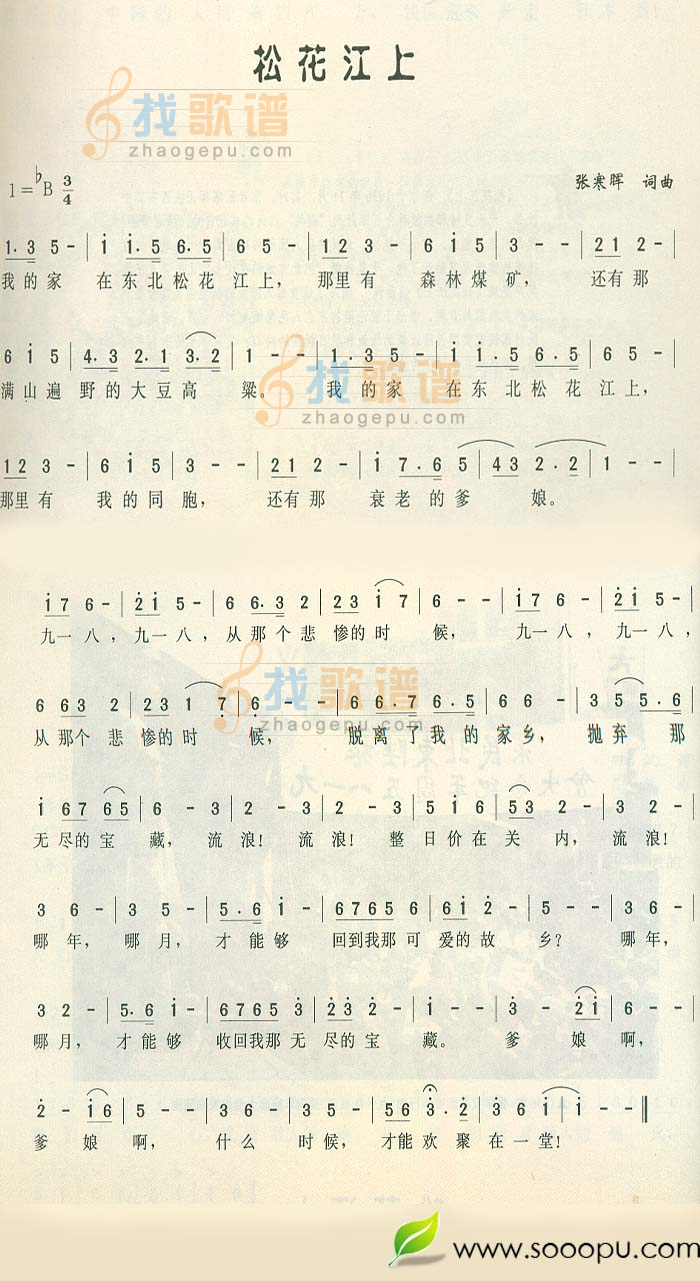 松花江上
找歌谱
zhaogepu.com
1=♭B 3/4
张寒晖 词曲
1.3 5- | i i.5 6.5 | 65 - | 12 3 - | 6 i 5 | 3 - - | 21 2 - |
我的家 在东北松花江上，那里有 森林煤矿，还有那
6 i 5 | 4.3 2.1 3.2 | 1 - - | 1.3 5 - | i i.5 6.5 | 6 5 - |
满山遍野的大豆高粱。我的家 在东北松花江上，
找歌谱
zhaogepu.com
12 3 - | 6 i 5 | 3 - - | 21 2 - | i 7.6 5 | 43 2.2 | 1 - - |
那里有 我的同胞，还有那 衰老的爹娘。
i7 6 - | 2i 5 - | 6 6.3 2 | 23 i 7 | 6 - - | i7 6 - | 2i 5 - |
九一八，九一八，从那个悲惨的时候，九一八，九一八，
找歌谱
zhaogepu.com
6 63 2 | 23 1 7 | 6 - - | 66.7 6.5 | 6 6 - | 3 5 5.6 |
从那个悲惨的时候，脱离了我的家乡，抛弃那
i 67 65 | 6 - 3 | 2 - 3 | 2 - 3 | 5 i 6 | 53 2 - | 3 2 - |
无尽的宝藏，流浪！流浪！整日价在关内，流浪！
3 6 - | 3 5 - | 5.6 i - | 6765 6 | 6i 2 - | 5 - - | 3 6 - |
哪年，哪月，才能够 回到我那可爱的故乡？哪年，
3 2 - | 5.6 i - | 6765 3 | 23 2 - | i - - | 3 - - | 2i | 6 - - |
哪月，才能够 收回我那无尽的宝藏。爹娘啊，
2 - i6 | 5 - - | 3 6 - | 3 5 - | 56 3.2 | 36 i | i - - ‖
爹娘啊，什么时候，才能欢聚在一堂！
www.sooopu.com